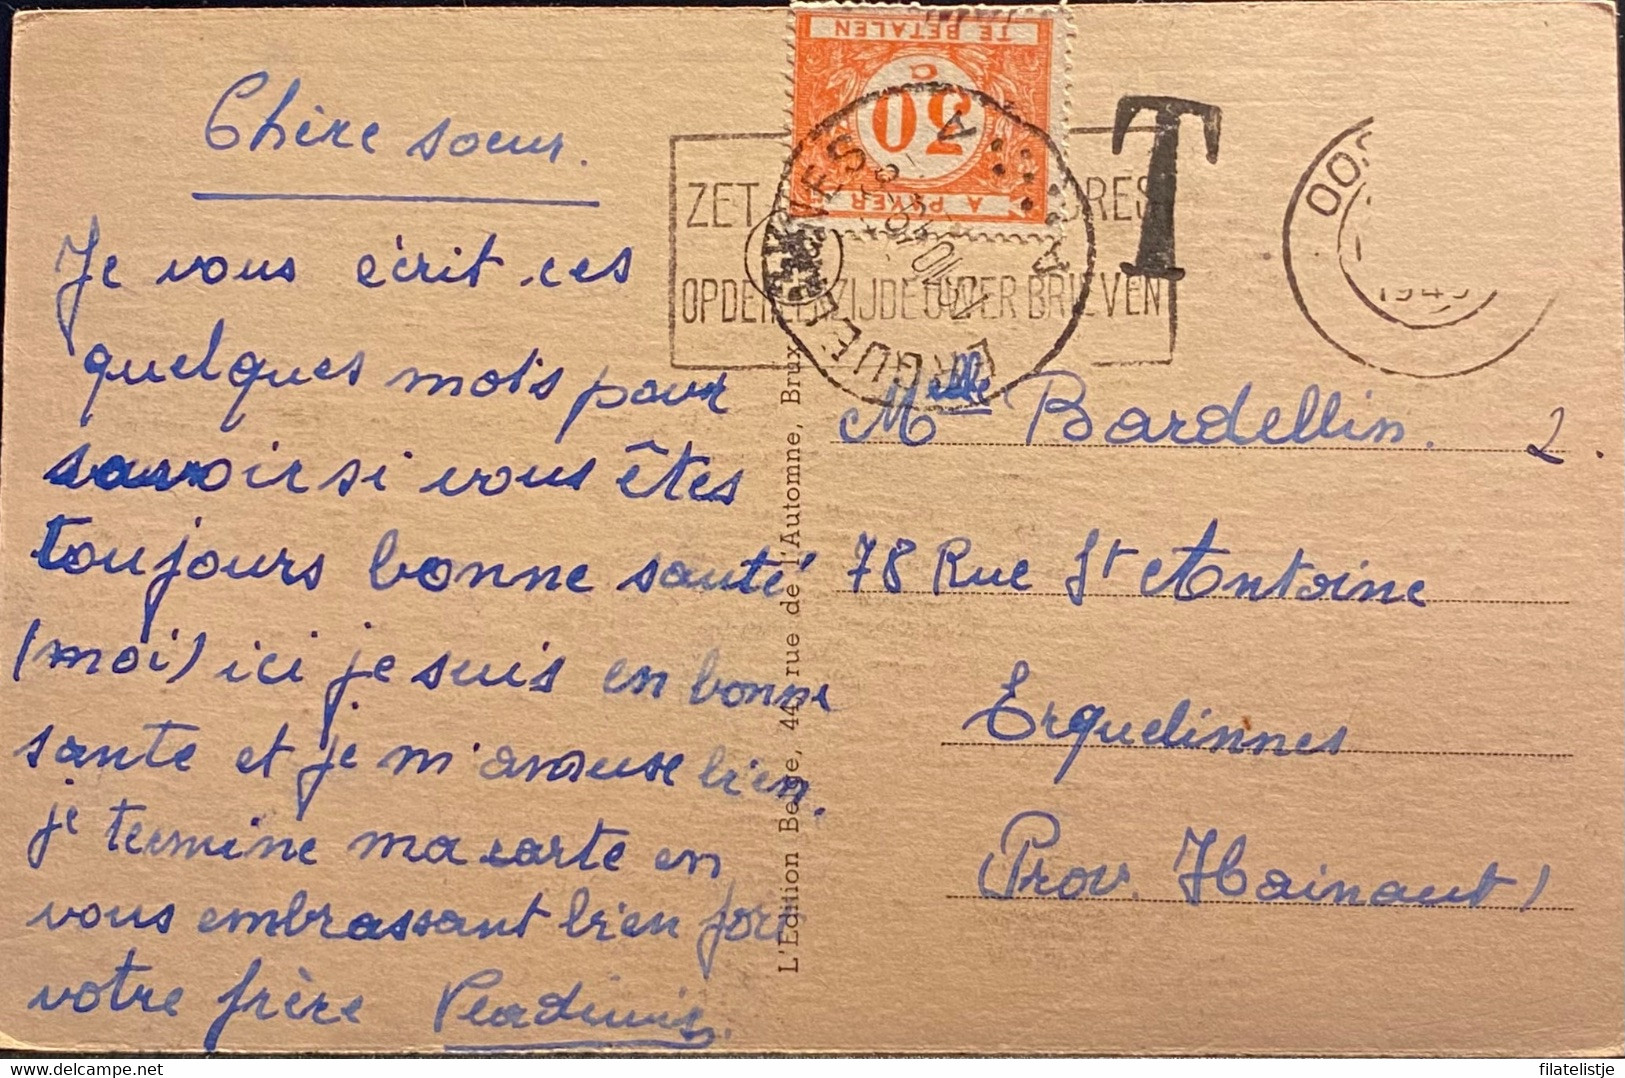 Chère soeur.
Je vous écrit ces
quelques mots pour
savoir si vous êtes
toujours bonne santé
(moi) ici je suis en bonne
sante et je m'amuse bien.
je termine ma carte en
vous embrassant bien fort
votre frère
TE BETALEN
30
C
A PAYER
T
ZET
OPDE ZIJDE UWER BRIEVEN
ERQUE
A
A
1949
L'Edition Belge, 44, rue de l'Automne, Brux
Melle Bardellin. 2.
78 Rue St Antoine
Erquelinnes
(Prov. Hainaut)
filatelistje